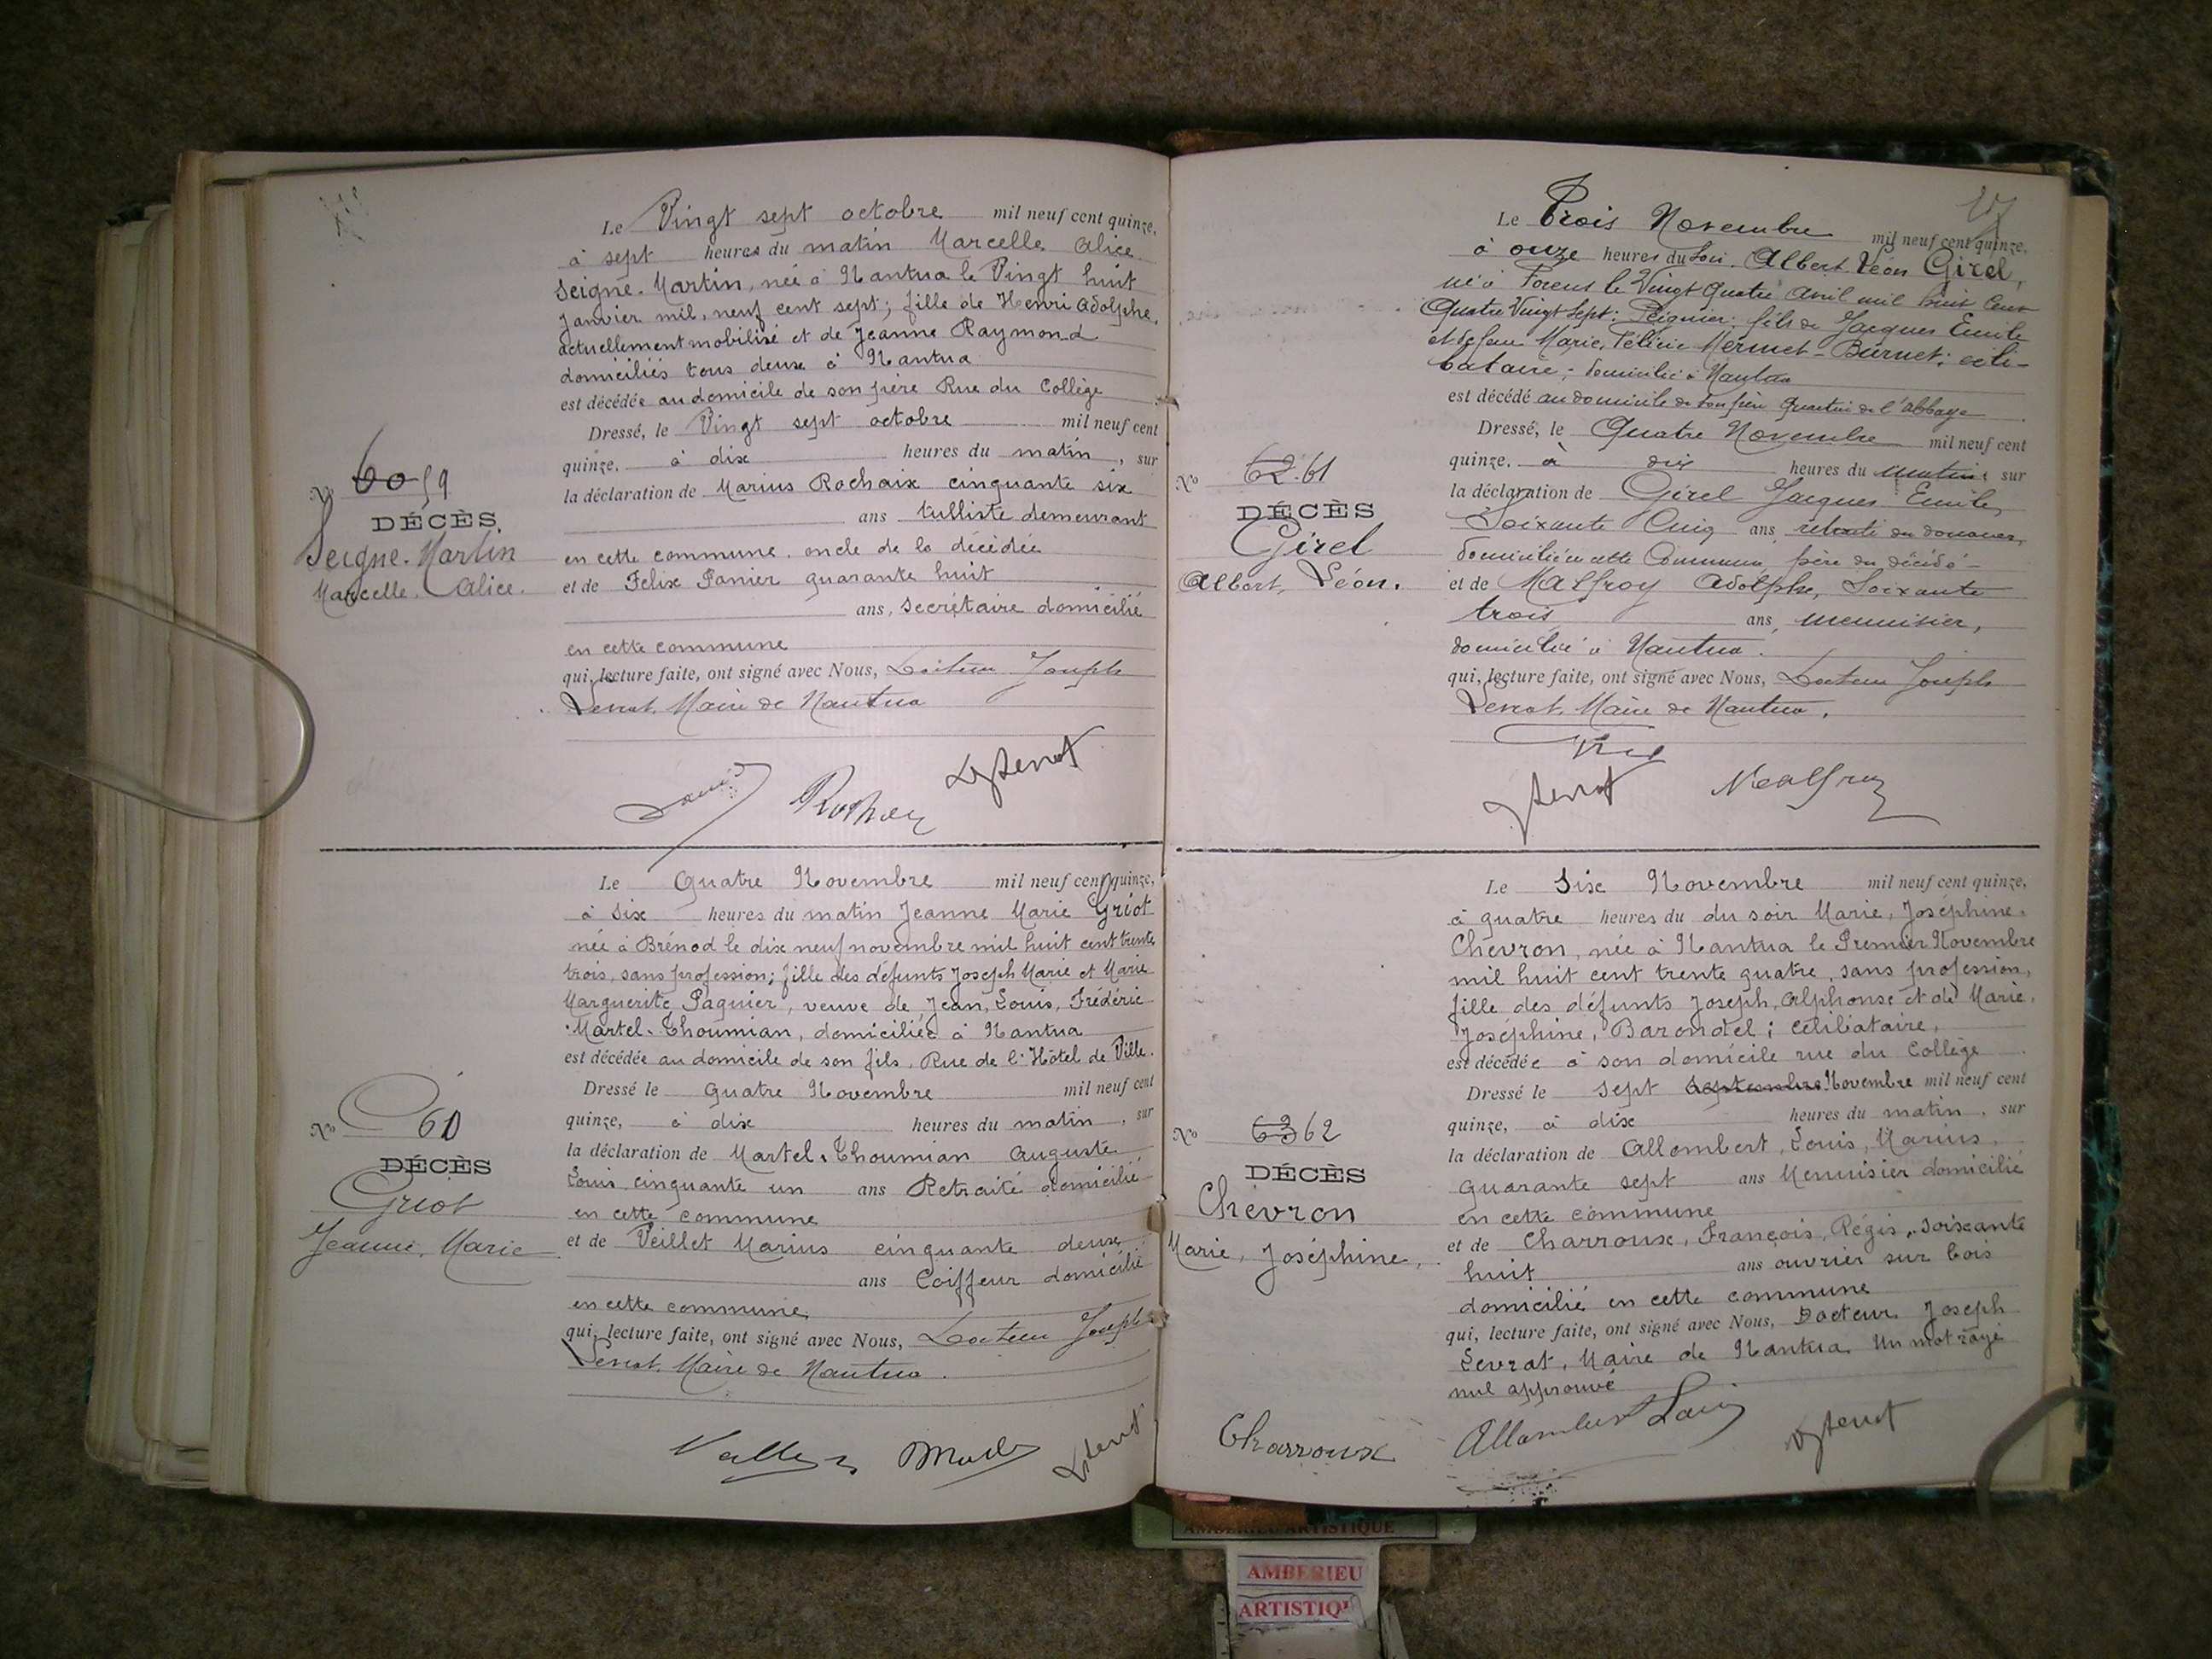 Le Vingt sept octobre mil neuf cent quinze,
à sept heures du matin Marcelle Alice
Seigne-Martin, née à Nantua le Vingt huit
janvier mil neuf cent sept; fille de Henri Adolphe,
actuellement mobilisé et de Jeanne Raymond
domiciliés tous deux à Nantua
est décédée au domicile de son père Rue du Collège
Dressé, le Vingt sept octobre mil neuf cent
quinze, à dix heures du matin, sur
la déclaration de Marius Rochaix cinquante six
ans tulliste demeurant
en cette commune, oncle de la décédée
et de Felix Panier quarante huit
ans, secrétaire domicilié
en cette commune
qui, lecture faite, ont signé avec Nous, Docteur Joseph
Levrat, Maire de Nantua
No 60 59
DÉCÈS
Seigne-Martin
Marcelle, Alice.
Le Quatre Novembre mil neuf cent quinze,
à six heures du matin Jeanne Marie Griot
née à Brénod le dix neuf novembre mil huit cent trente
trois, sans profession; fille des défunts Joseph Marie et Marie
Marguerite Paquier, veuve de Jean, Louis, Frédéric
Martel-Thoumian, domiciliée à Nantua
est décédée au domicile de son fils, Rue de l'Hôtel de Ville.
Dressé le quatre Novembre mil neuf cent
quinze, à dix heures du matin, sur
la déclaration de Martel-Thoumian Auguste
Louis cinquante un ans Retraité domicilié
en cette commune
et de Veillet Marius cinquante deux
ans Coiffeur domicilié
en cette commune
qui, lecture faite, ont signé avec Nous, Docteur Joseph
Levrat, Maire de Nantua.
No 60
DÉCÈS
Griot
Jeanne, Marie
Le Trois Novembre mil neuf cent quinze,
à onze heures du soir Albert Léon Girel,
né à le Vingt Quatre avril mil huit cent
Quatre Vingt Sept; Peignier; fils de Jacques Emile
et de feue Marie, Félicie Mermet-Burnet; céli-
bataire; domicilié à Nantua
est décédé au domicile de son père quartier de l'abbaye
Dressé, le Quatre Novembre mil neuf cent
quinze, à dix heures du matin, sur
la déclaration de Girel Jacques Emile,
Soixante Cinq ans, retraité des douanes,
domicilié en cette Commune, père du décédé
et de Malfroy Adolphe, Soixante
trois ans, menuisier,
domicilié à Nantua.
qui, lecture faite, ont signé avec Nous, Docteur Joseph
Levrat, Maire de Nantua.
No 62 61
DÉCÈS
Girel
Albert, Léon.
Malfroy
Le Six Novembre mil neuf cent quinze,
à quatre heures du du soir Marie, Joséphine
Chevron, née à Nantua le Premier Novembre
mil huit cent trente quatre, sans profession,
fille des défunts Joseph, Alphonse et de Marie,
Joséphine, Barondel; célibataire,
est décédée à son domicile rue du Collège
Dressé le sept septembre Novembre mil neuf cent
quinze, à dix heures du matin, sur
la déclaration de Allombert, Louis, Marius,
quarante sept ans Menuisier domicilié
en cette commune
et de Charroux, François, Régis, soixante
huit ans ouvrier sur bois
domicilié en cette commune
qui, lecture faite, ont signé avec Nous, Docteur Joseph
Levrat, Maire de Nantua. Un mot rayé
nul approuvé
No 63 62
DÉCÈS
Chevron
Marie, Joséphine,
Charroux
Allombert Louis
AMBERIEU ARTISTIQUE
AMBERIEU
ARTISTIQ